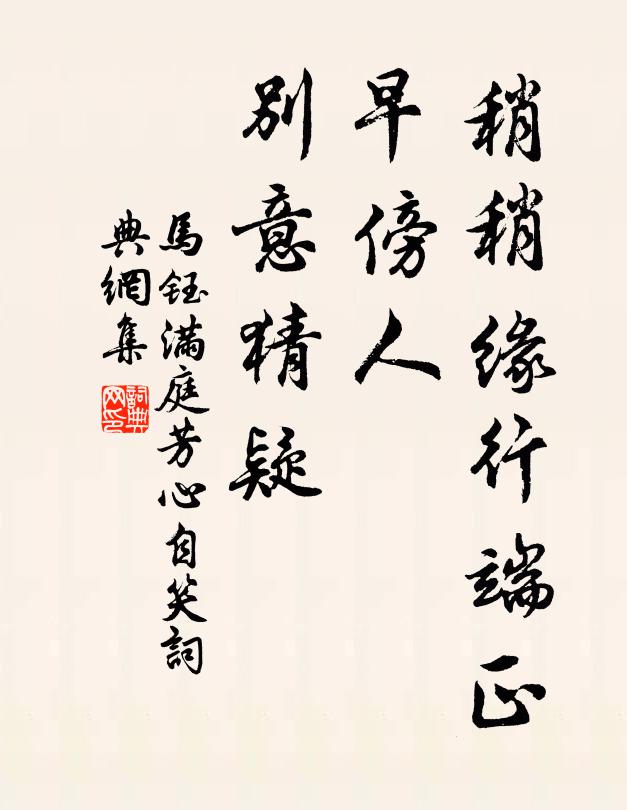 稍稍緣行端正
早傍人
別意猜疑
馬鈺滿庭芳心自笑詞
典網集
詞典网印